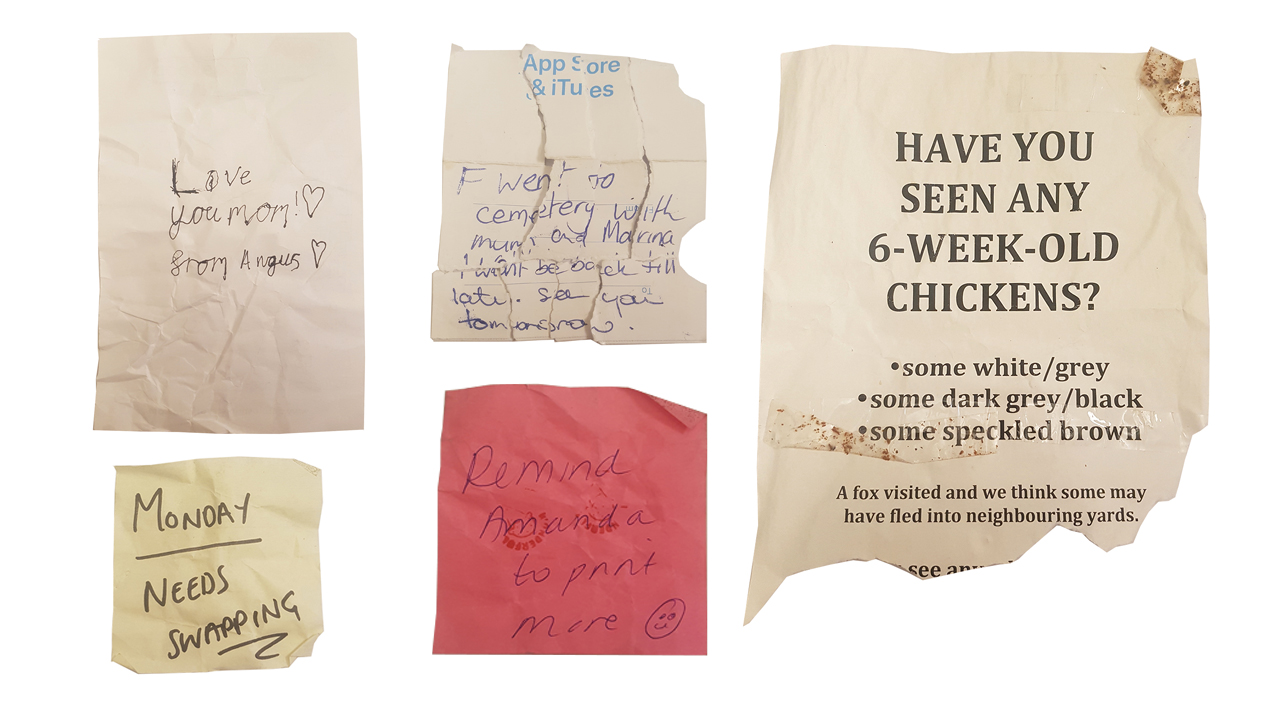 Love
you mom! ♡
from Angus ♡
App Store
& iTunes
F went to
cemetery with
mum and Marina
I won't be back till
late. See you
tomorrow.
MONDAY
NEEDS
SWAPPING
Remind
Amanda
to print
more ☺
HAVE YOU
SEEN ANY
6-WEEK-OLD
CHICKENS?
•some white/grey
•some dark grey/black
•some speckled brown
A fox visited and we think some may
have fled into neighbouring yards.
see any